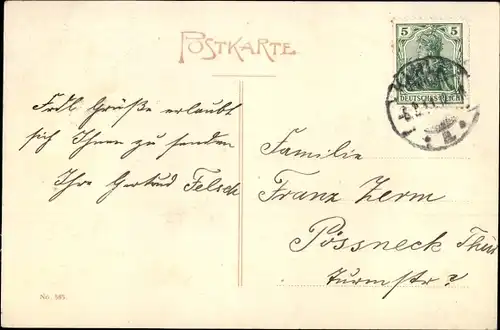 POSTKARTE
5 5
DEUTSCHES REICH
Frdl. Grüße erlaubt
sich Ihnen zu senden
Ihre Gertrud Felsch
Familie
Franz Zerm
Pössneck Thür
Turmstr?
No. 385.